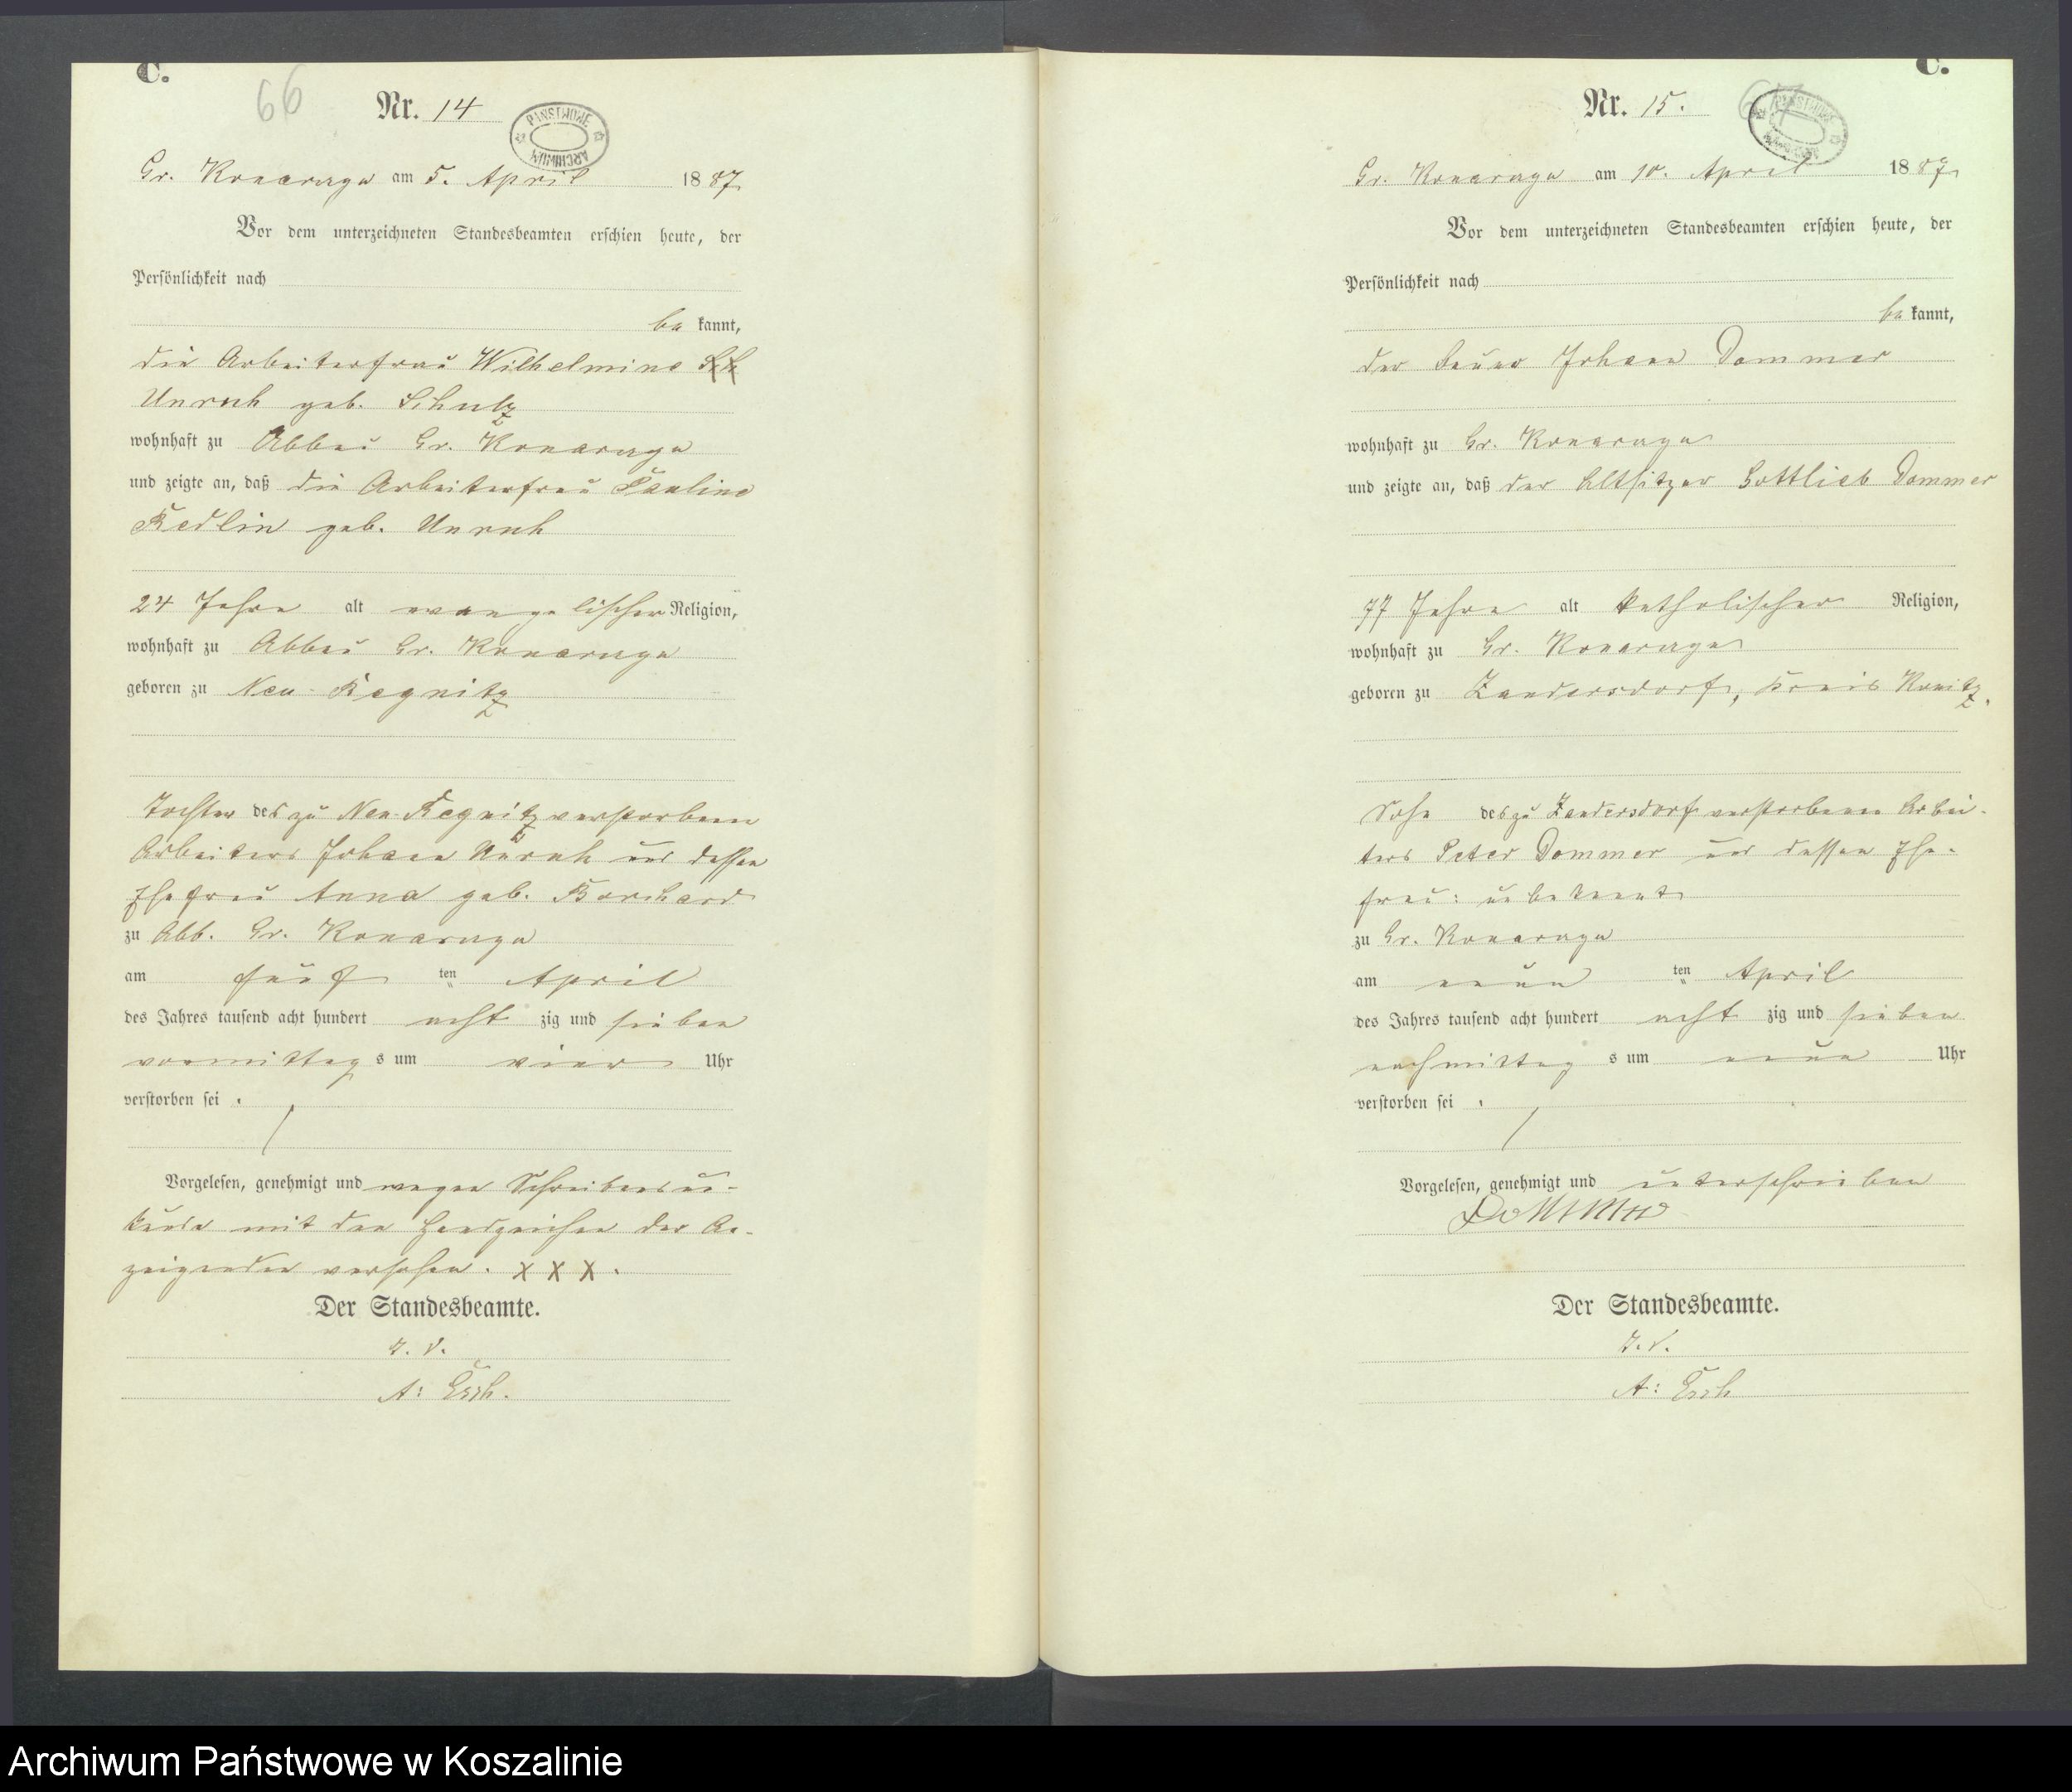 C.
66
Nr. 14
PAŃSTWOWE ARCHIWUM
Gr. Konarczyn am 5. April 1887
Vor dem unterzeichneten Standesbeamten erschien heute, der
Persönlichkeit nach
be kannt,
die Arbeiterfrau Wilhelmine
Unruh geb. Schulz
wohnhaft zu Abbau Gr. Konarczyn
und zeigte an, daß die Arbeiterfrau Pauline
Redlin geb. Unruh
24 Jahre alt evangelischer Religion,
wohnhaft zu Abbau Gr. Konarczyn
geboren zu Neu-
Tochter des zu Neu- verstorbenen
Arbeiters Johann Unruh und dessen
Ehefrau Anna geb. Borchard
zu Abb. Gr. Konarczyn
am fünf ten April
des Jahres tausend acht hundert acht zig und sieben
vormittag s um vier Uhr
verstorben sei .
Vorgelesen, genehmigt und wegen Schreibensun-
kunde mit den Handzeichen der An-
zeigenden versehen. X X X.
Der Standesbeamte.
A: Esch.
C.
Nr. 15.
PAŃSTWOWE ARCHIWUM
Gr. Konarczyn am 10. April 1887
Vor dem unterzeichneten Standesbeamten erschien heute, der
Persönlichkeit nach
be kannt,
der Bauer Johann Dommer
wohnhaft zu Gr. Konarczyn
und zeigte an, daß der Altsitzer Gottlieb Dommer
77 Jahre alt katholischer Religion,
wohnhaft zu Gr. Konarczyn
geboren zu Zandersdorf, Kreis Konitz.
Sohn des zu Zandersdorf verstorbenen Arbei-
ters Peter Dommer und dessen Ehe-
frau: unbekannt
zu Gr. Konarczyn
am neun ten April
des Jahres tausend acht hundert acht zig und sieben
nachmittag s um neun Uhr
verstorben sei .
Vorgelesen, genehmigt und unterschrieben
Der Standesbeamte.
A: Esch
Archiwum Państwowe w Koszalinie